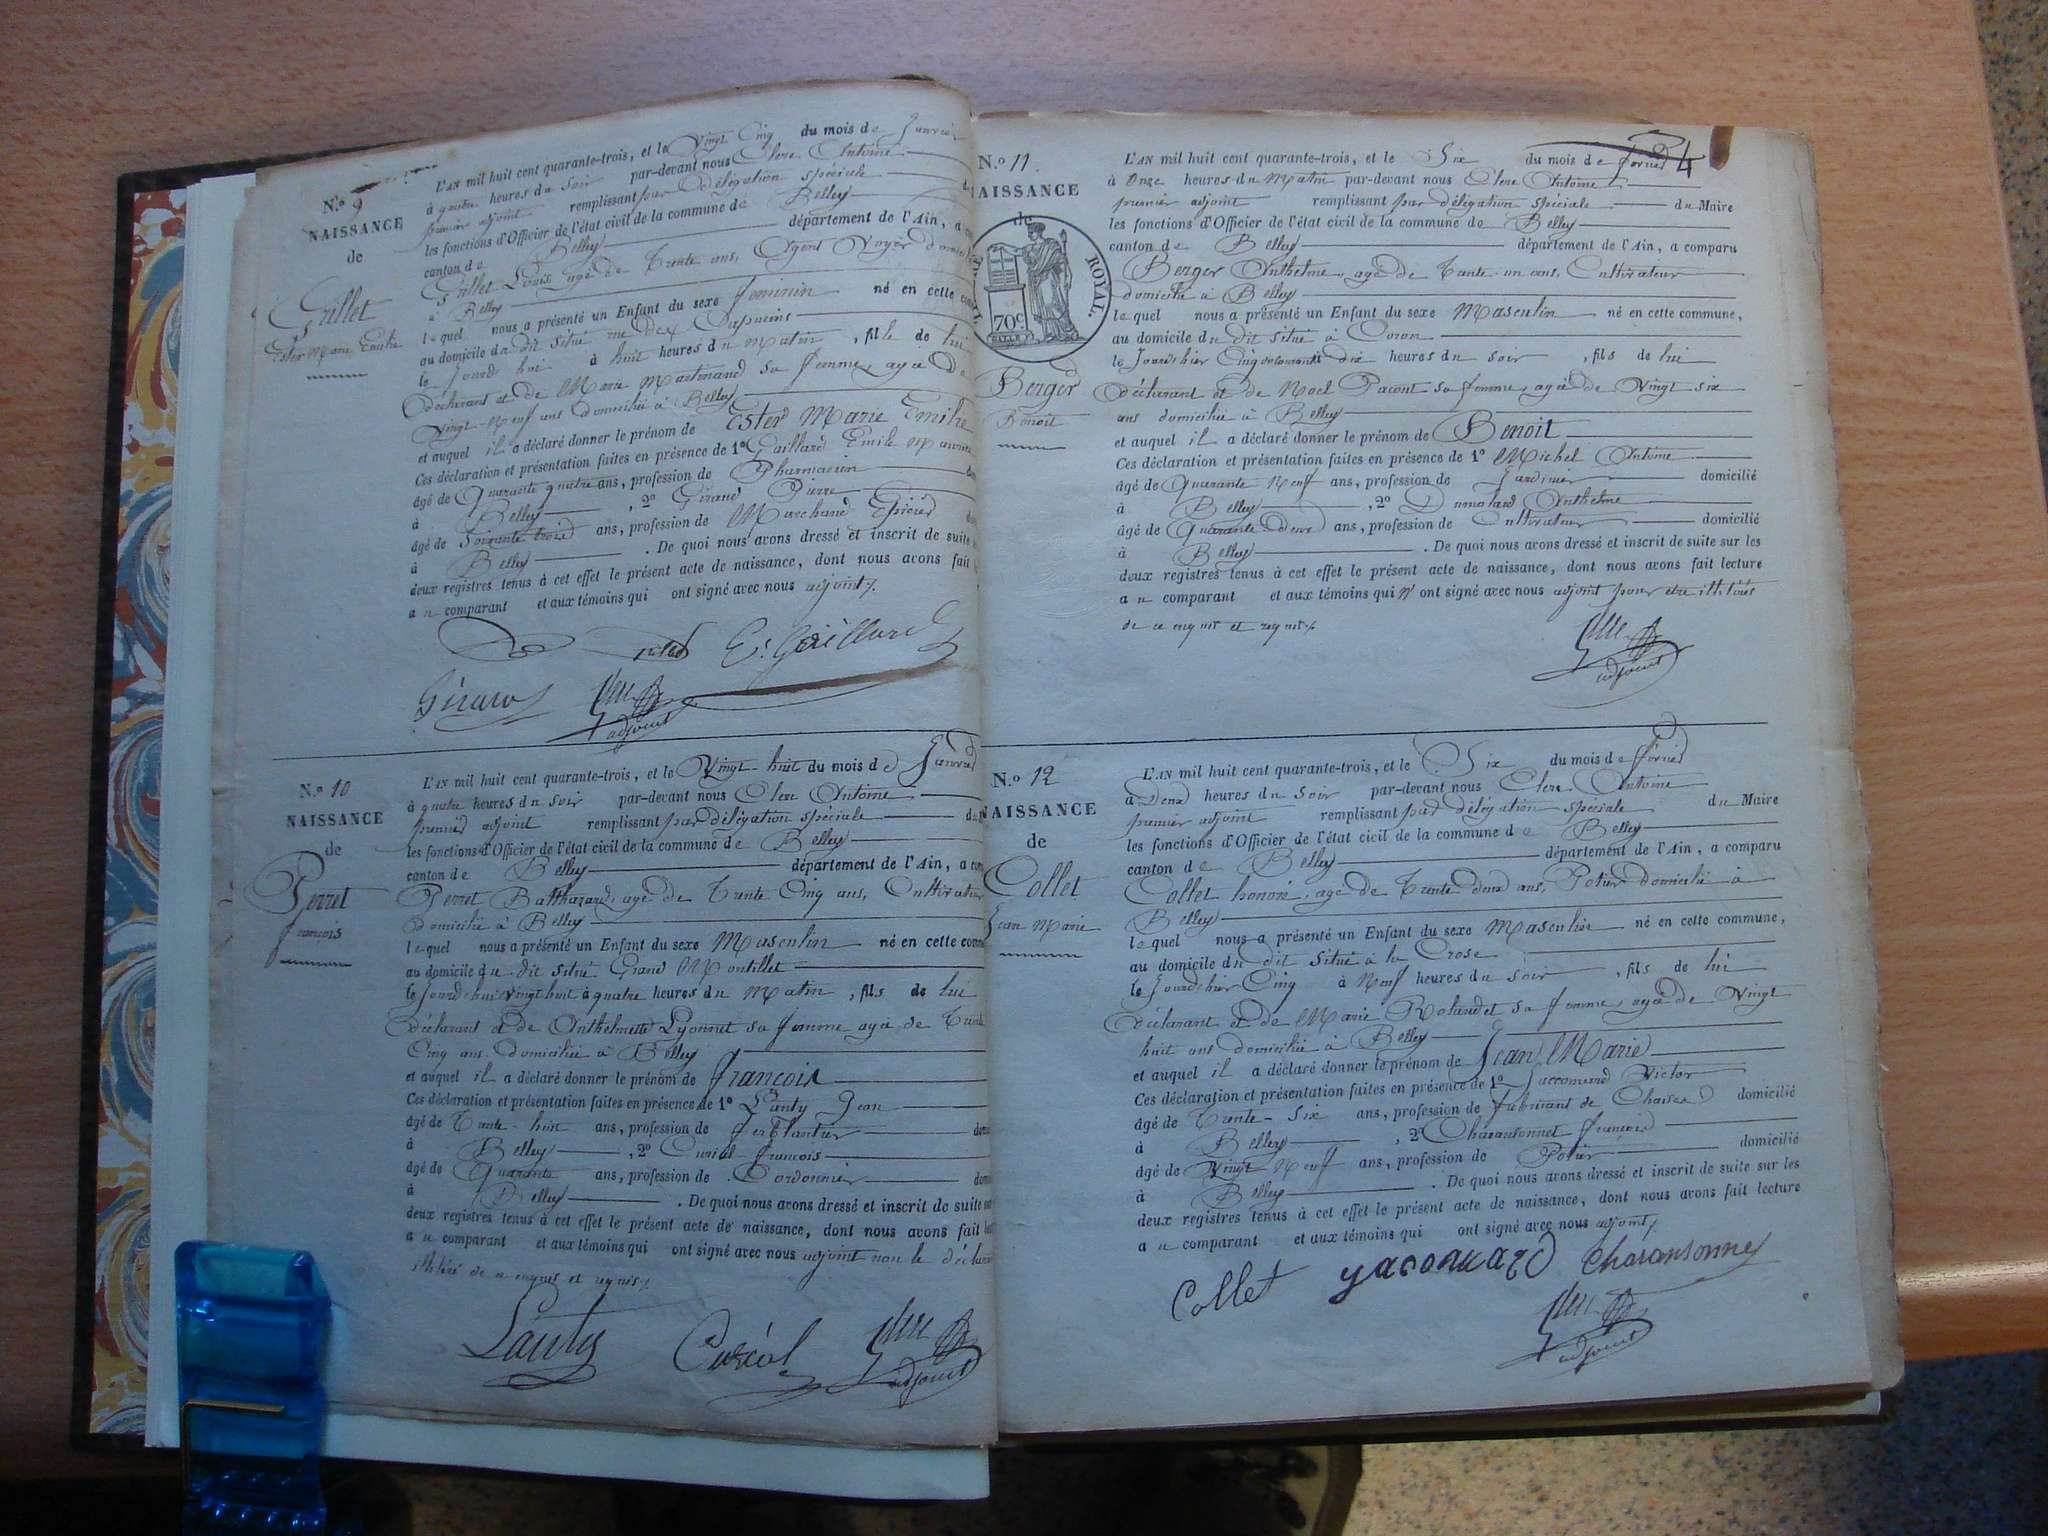 N.º 9
NAISSANCE
de
Grillet
Ester Marie Emilie
L'AN mil huit cent quarante-trois, et le Vingt Cinq du mois de Janvier
à quatre heures du Soir par-devant nous Clerc Antoine
premier adjoint remplissant par délégation spéciale
les fonctions d'Officier de l'état civil de la commune de Belley
canton de Belley département de l'Ain, a
Grillet Louis agé de Trente ans, Agent Voyer
à Belley
lequel nous a présenté un Enfant du sexe feminin né en cette
au domicile du dit situé rue des Capucins
le Jourd'hui à huit heures du Matin, fille de lui
déclarant et de Marie Martinand sa femme, agée de
Vingt-Neuf ans domiciliée à Belley
et auquel il a déclaré donner le prénom de Ester Marie Emilie
Ces déclaration et présentation faites en présence de 1º Gaillard Emile
âgé de Quarante quatre ans, profession de Pharmacien
à Belley, 2º Girard Pierre
âgé de Soixante trois ans, profession de Marchand Epicier
à Belley. De quoi nous avons dressé et inscrit de suite
deux registres tenus à cet effet le présent acte de naissance, dont nous avons fait
au comparant et aux témoins qui ont signé avec nous adjoint.
E. Gaillard
Girard Clerc
adjoint
N.º 10
NAISSANCE
de
Perret
françois
L'AN mil huit cent quarante-trois, et le Vingt-huit du mois de Janvier
à quatre heures du Soir par-devant nous Clerc Antoine
premier adjoint remplissant par délégation spéciale
les fonctions d'Officier de l'état civil de la commune de Belley
canton de Belley département de l'Ain, a
Perret Balthazard, agé de Trente Cinq ans, Cultivateur
domicilié à Belley
lequel nous a présenté un Enfant du sexe Masculin né en cette
au domicile du dit situé Grand Montillet
le Jourd'hui Vingt huit à quatre heures du Matin, fils de lui
déclarant et de Anthelmette Lyonnet sa femme agée de Trente
Cinq ans domiciliée à Belley
et auquel il a déclaré donner le prénom de françois
Ces déclaration et présentation faites en présence de 1º Lanty Jean
âgé de Trente-huit ans, profession de ferblantier
à Belley, 2º Curial françois
âgé de Quarante ans, profession de Cordonnier
à Belley. De quoi nous avons dressé et inscrit de suite
deux registres tenus à cet effet le présent acte de naissance, dont nous avons fait
au comparant et aux témoins qui ont signé avec nous adjoint non le
illitéré de ce enquis et requis.
Lanty Curial Clerc
adjoint
4
N.º 11
NAISSANCE
de
ROYAL.
70 c.
Berger
Benoit
L'AN mil huit cent quarante-trois, et le Six du mois de fevrier
à Onze heures du Matin par-devant nous Clerc Antoine
premier adjoint remplissant par délégation spéciale du Maire
les fonctions d'Officier de l'état civil de la commune de Belley
canton de Belley département de l'Ain, a comparu
Berger Anthelme, agé de Trente un ans, Cultivateur
domicilié à Belley
lequel nous a présenté un Enfant du sexe Masculin né en cette commune,
au domicile du dit situé à Coron
le Jourd'hier Cinq du courant à dix heures du soir, fils de lui
déclarant et de Noel Pacout sa femme, agée de Vingt six
ans domiciliée à Belley
et auquel il a déclaré donner le prénom de Benoit
Ces déclaration et présentation faites en présence de 1º Michel Antoine
âgé de Quarante Neuf ans, profession de Jardinier domicilié
à Belley, 2º Dumolard Anthelme
âgé de Quarante Deux ans, profession de Cultivateur domicilié
à Belley. De quoi nous avons dressé et inscrit de suite sur les
deux registres tenus à cet effet le présent acte de naissance, dont nous avons fait lecture
au comparant et aux témoins qui n'ont signé avec nous adjoint pour etre illitérés
de ce enquis et requis.
Clerc
adjoint
N.º 12
NAISSANCE
de
Collet
Jean Marie
L'AN mil huit cent quarante-trois, et le Six du mois de fevrier
à Deux heures du Soir par-devant nous Clerc Antoine
premier adjoint remplissant par délégation spéciale du Maire
les fonctions d'Officier de l'état civil de la commune de Belley
canton de Belley département de l'Ain, a comparu
Collet honoré, agé de Trente deux ans, Potier domicilié à
Belley
lequel nous a présenté un Enfant du sexe Masculin né en cette commune,
au domicile du dit situé à la Crose
le Jourd'hier Cinq à Neuf heures du Soir, fils de lui
déclarant et de Marie Rolandet sa femme, agée de Vingt
huit ans domiciliée à Belley
et auquel il a déclaré donner le prénom de Jean Marie
Ces déclaration et présentation faites en présence de 1º Jaccomard Victor
âgé de Trente-Six ans, profession de fabricant de Chaises domicilié
à Belley, 2º Charansonnet françois
âgé de Vingt Neuf ans, profession de Potier domicilié
à Belley. De quoi nous avons dressé et inscrit de suite sur les
deux registres tenus à cet effet le présent acte de naissance, dont nous avons fait lecture
au comparant et aux témoins qui ont signé avec nous adjoint.
Collet yacomard Charansonney
Clerc
adjoint